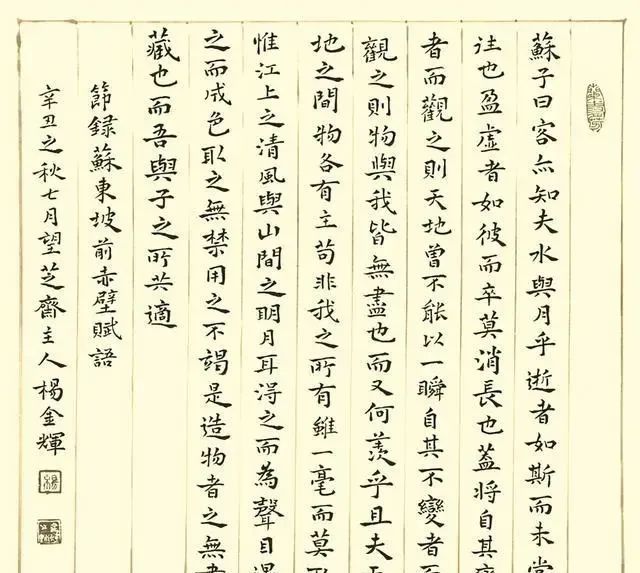 蘇子曰客亦知夫水與月乎逝者如斯而未嘗
往也盈虛者如彼而卒莫消長也蓋將自其
者而觀之則天地曾不能以一瞬自其不變者而
觀之則物與我皆無盡也而又何羨乎且夫天
地之間物各有主苟非我之所有雖一毫而莫取
惟江上之清風與山間之明月耳得之而為聲目遇
之而成色取之無禁用之不竭是造物者之無盡
藏也而吾與子之所共適
節錄蘇東坡前赤壁賦語
辛丑之秋七月望芝齋主人楊金輝